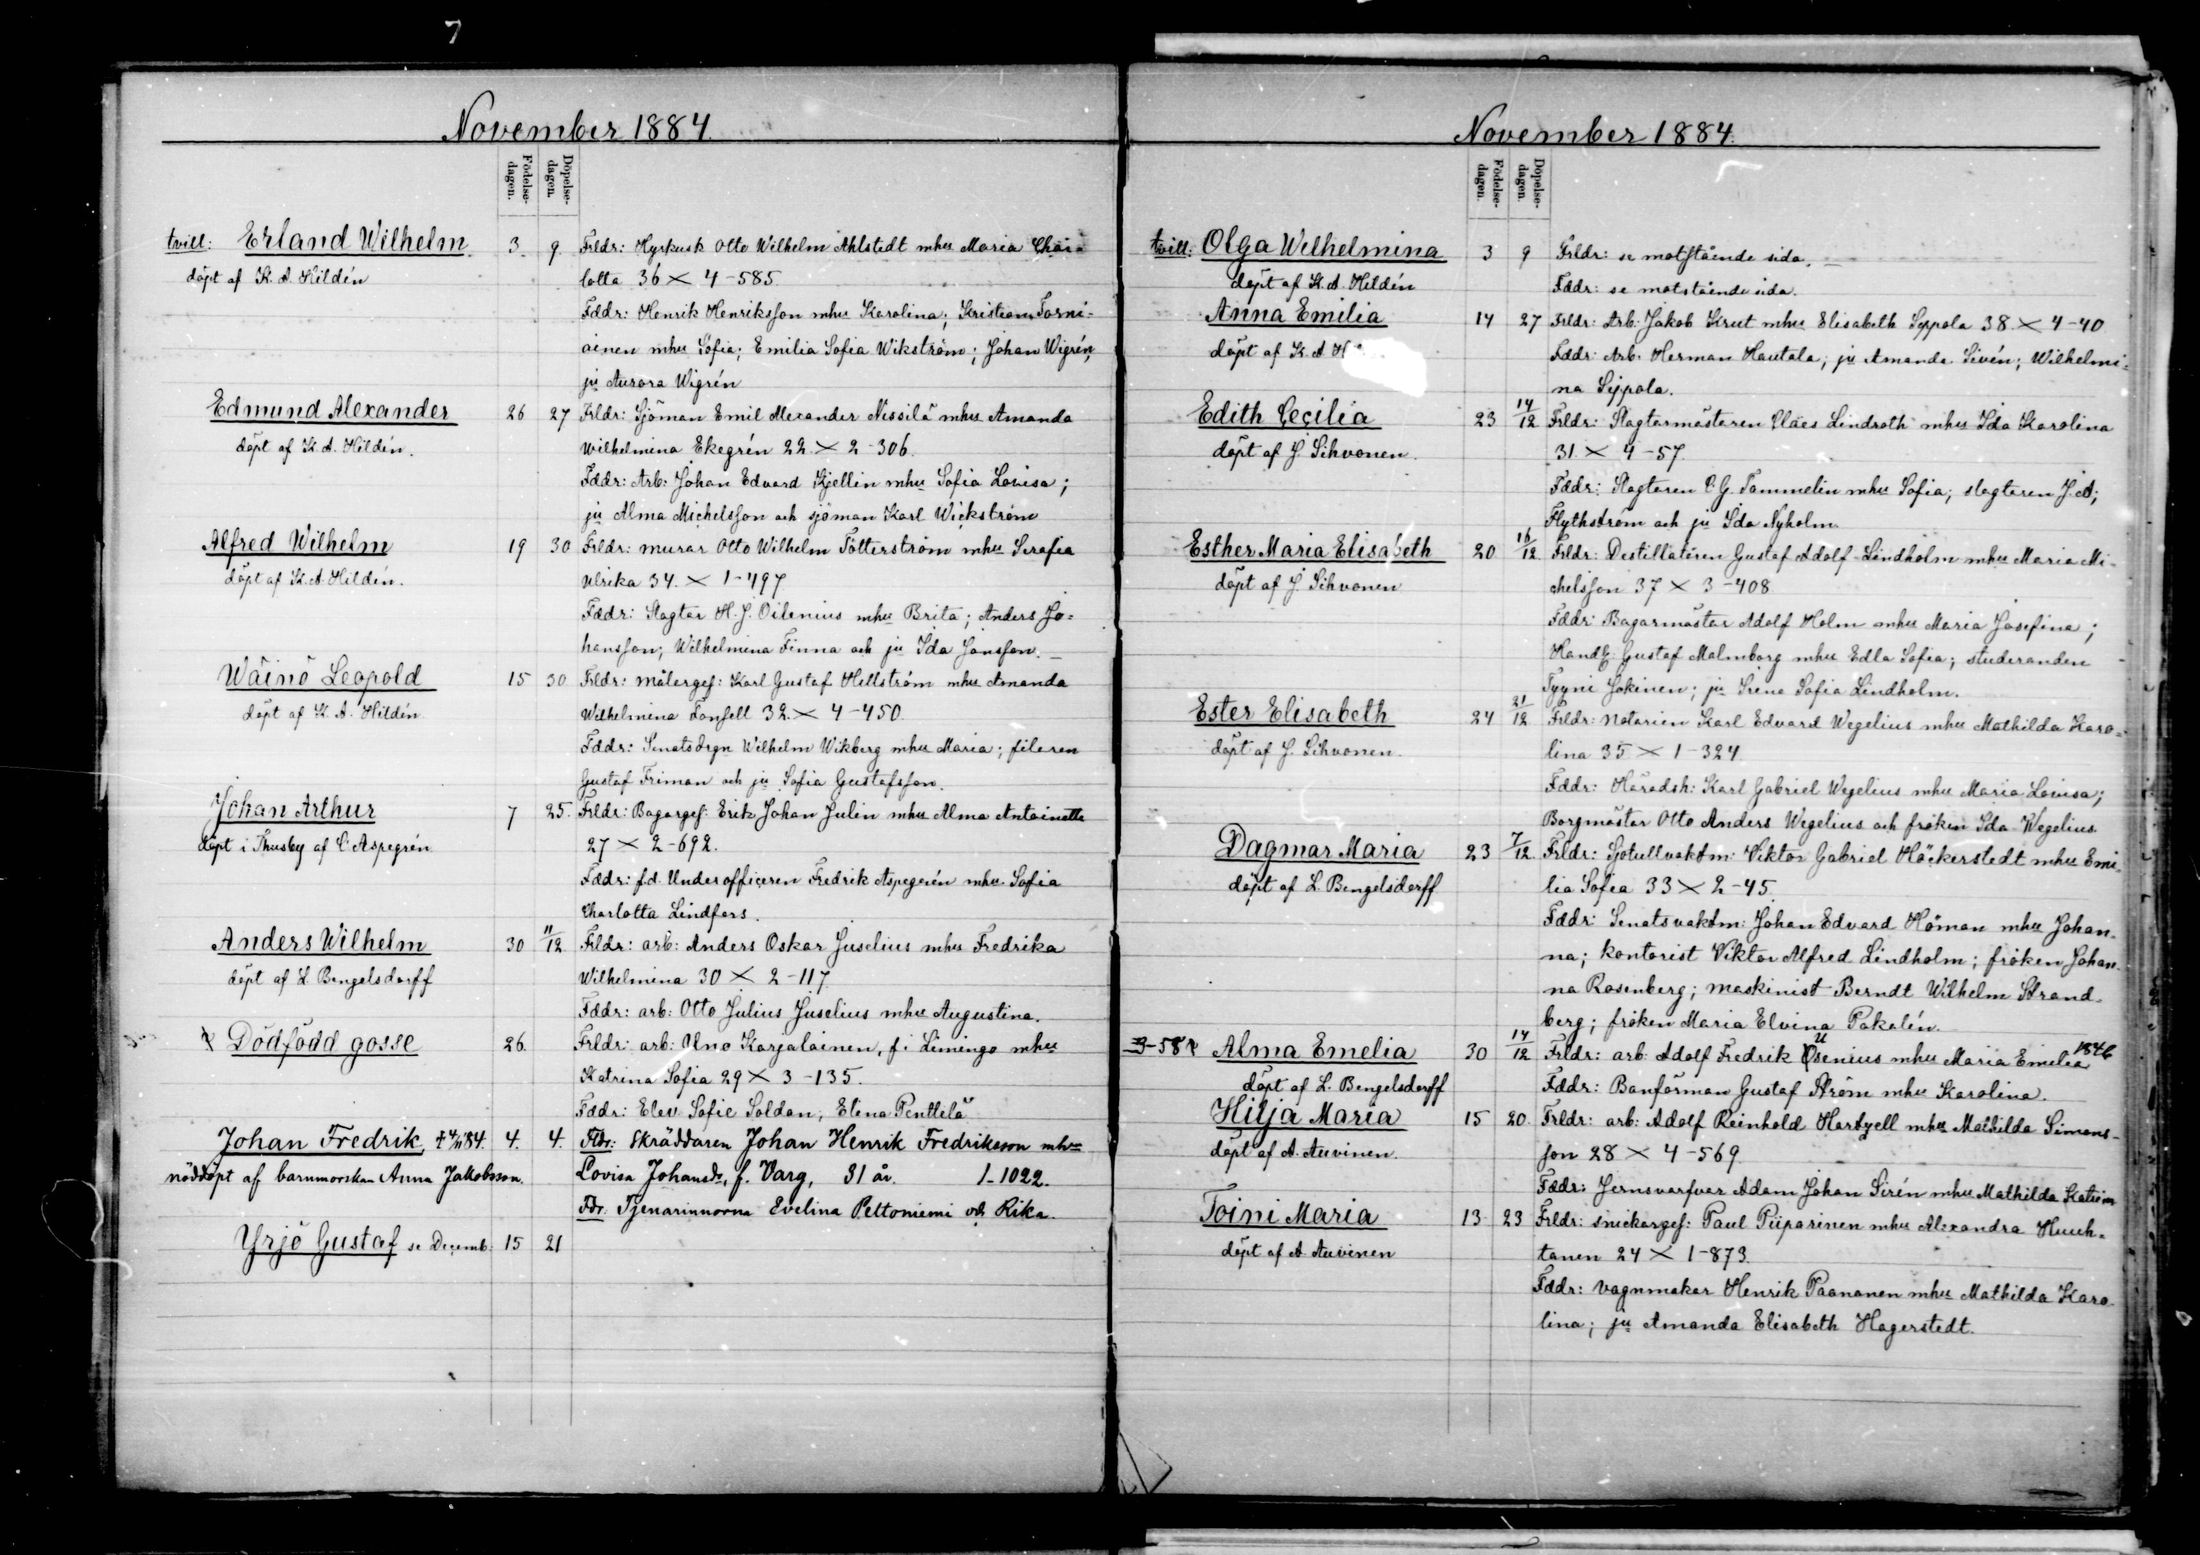 7
November 1884.
Födelse-dagen. Döpelse-dagen.
tvill: Erland Wilhelm 3. 9. Frldr: Hyrkusk Otto Wilhelm Ahlstedt mhu Maria Char-
döpt af K. A. Hildén lotta 36 × 4-585
Fddr: Henrik Henriksson mhu Karolina; Kristian Torni-
ainen mhu Sofia; Emilia Sofia Wikström; Johan Wigrén,
ju Aurora Wigrén
Edmund Alexander 26 27 Frldr: Sjöman Emil Alexander Nissilä mhu Amanda
döpt af K. A. Hildén. Wilhelmina Ekegrén 22. × 2-306.
Fddr: Arb: Johan Edvard Kjellin mhu Sofia Lovisa;
ju Alma Michelsson och sjöman Karl Wickström
Alfred Wilhelm 19 30 Frldr: murar Otto Wilhelm Tötterström mhu Serafia
döpt af K. A. Hildén. Ulrika 34. × 1-497
Fddr: Slagtar H. J. Oilenius mhu Brita; Anders Jo-
hansson; Wilhelmina Finna och ju Ida Jansson.
Wäinö Leopold 15 30 Frldr: målerges: Karl Gustaf Hellström mhu Amanda
döpt af K. A. Hildén Wilhelmina Tonsell 32. × 4-450.
Fddr: Senatsdrgn Wilhelm Wikberg mhu Maria; fileren
Gustaf Friman och ju Sofia Gustafsson.
Johan Arthur 7 25. Frldr: Bagarges: Erik Johan Julin mhu Alma Antoinette
döpt i Thusby af C. Aspegrén 27 × 2-692.
Fddr: f.d. Underofficeren Fredrik Aspegrén mhu Sofia
Charlotta Lindfors.
Anders Wilhelm 30 11/12 Frldr: arb: Anders Oskar Juselius mhu Fredrika
döpt af L. Bengelsdorff Wilhelmina 30 × 2-117
Fddr: arb: Otto Julius Juselius mhu Augustina.
Dödfödd gosse 26. Frldr: arb: Uno Karjalainen, f. i Limingo mhu
Katrina Sofia 29 × 3-135.
Fddr: Elev Sofie Soldan, Elena Penttelä
Johan Fredrik, † 4/11 84. 4. 4. Fldr: Skräddaren Johan Henrik Fredriksson mhu
nöddöpt af barnmorskan Anna Jakobsson. Lovisa Johansdr, f. Varg, 31 år. 1-1022.
Fdr: Tjenarinnorna Evelina Peltoniemi och Rika.
Yrjö Gustaf se Decemb: 15 21
November 1884.
Födelse-dagen. Döpelse-dagen.
tvill: Olga Wilhelmina 3 9 Frldr: se motstående sida.
döpt af K. A. Hildén Fddr: se motstående sida.
Anna Emilia 14 27 Frldr: Arb: Jakob Krut mhu Elisabeth Seppola 38. × 4-40
döpt af K. A. Fddr: Arb: Herman Hautala; ju Amanda Sivén; Wilhelmi-
na Seppola.
Edith Cecilia 23 14/12 Frldr: Slagtarmästaren Claes Lindroth mhu Ida Karolina
döpt af J. Sihvonen. 31. × 4-57.
Fddr: Slagtaren C. G. Tammelin mhu Sofia; slagtaren J. A.
Flythström och ju Ida Nyholm.
Esther Maria Elisabeth 20 16/12 Frldr: Destillatören Gustaf Adolf Lindholm mhu Maria Mi-
döpt af J. Sihvonen chelsson 37 × 3-408
Fddr: Bagarmästar Adolf Holm mhu Maria Josefina;
Handl: Gustaf Malmborg mhu Edla Sofia; studeranden
Tyyni Jokinen; ju Irene Sofia Lindholm.
Ester Elisabeth 24 21/12 Frldr: Notarien Karl Edvard Wegelius mhu Mathilda Karo-
döpt af J. Sihvonen. lina 35 × 1-324
Fddr: Häradsh: Karl Gabriel Wegelius mhu Maria Lovisa;
Borgmästar Otto Anders Wegelius och fröken Ida Wegelius.
Dagmar Maria 23 7/12 Frldr: Sjötullvaktm: Viktor Gabriel Häckerstedt mhu Emi-
döpt af L. Bengelsdorff lia Sofia 33 × 2-45.
Fddr: Senatsvaktm: Johan Edvard Höman mhu Johan-
na; kontorist Viktor Alfred Lindholm; fröken Johan-
na Rosenberg; maskinist Berndt Wilhelm Strand-
berg; fröken Maria Elvina Pakalén.
3-58 Alma Emelia 30 14/12 Frldr: arb: Adolf Fredrik Usenius mhu Maria Emelia 1846
döpt af L. Bengelsdorff Fddr: Banförman Gustaf Ström mhu Karolina.
Hilja Maria 15 20. Frldr: arb: Adolf Reinhold Hartzell mhu Mathilda Simons-
döpt af A. Auvinen. son 28 × 4-569
Fddr: Jernsvarfvar Adam Johan Sirén mhu Mathilda Katrin
Toini Maria 13 23 Frldr: snickarges: Paul Piiparinen mhu Alexandra Huuh-
döpt af A. Auvinen tanen 24 × 1-873.
Fddr: vagnmakar Henrik Paananen mhu Mathilda Karo-
lina; ju Amanda Elisabeth Hagerstedt.